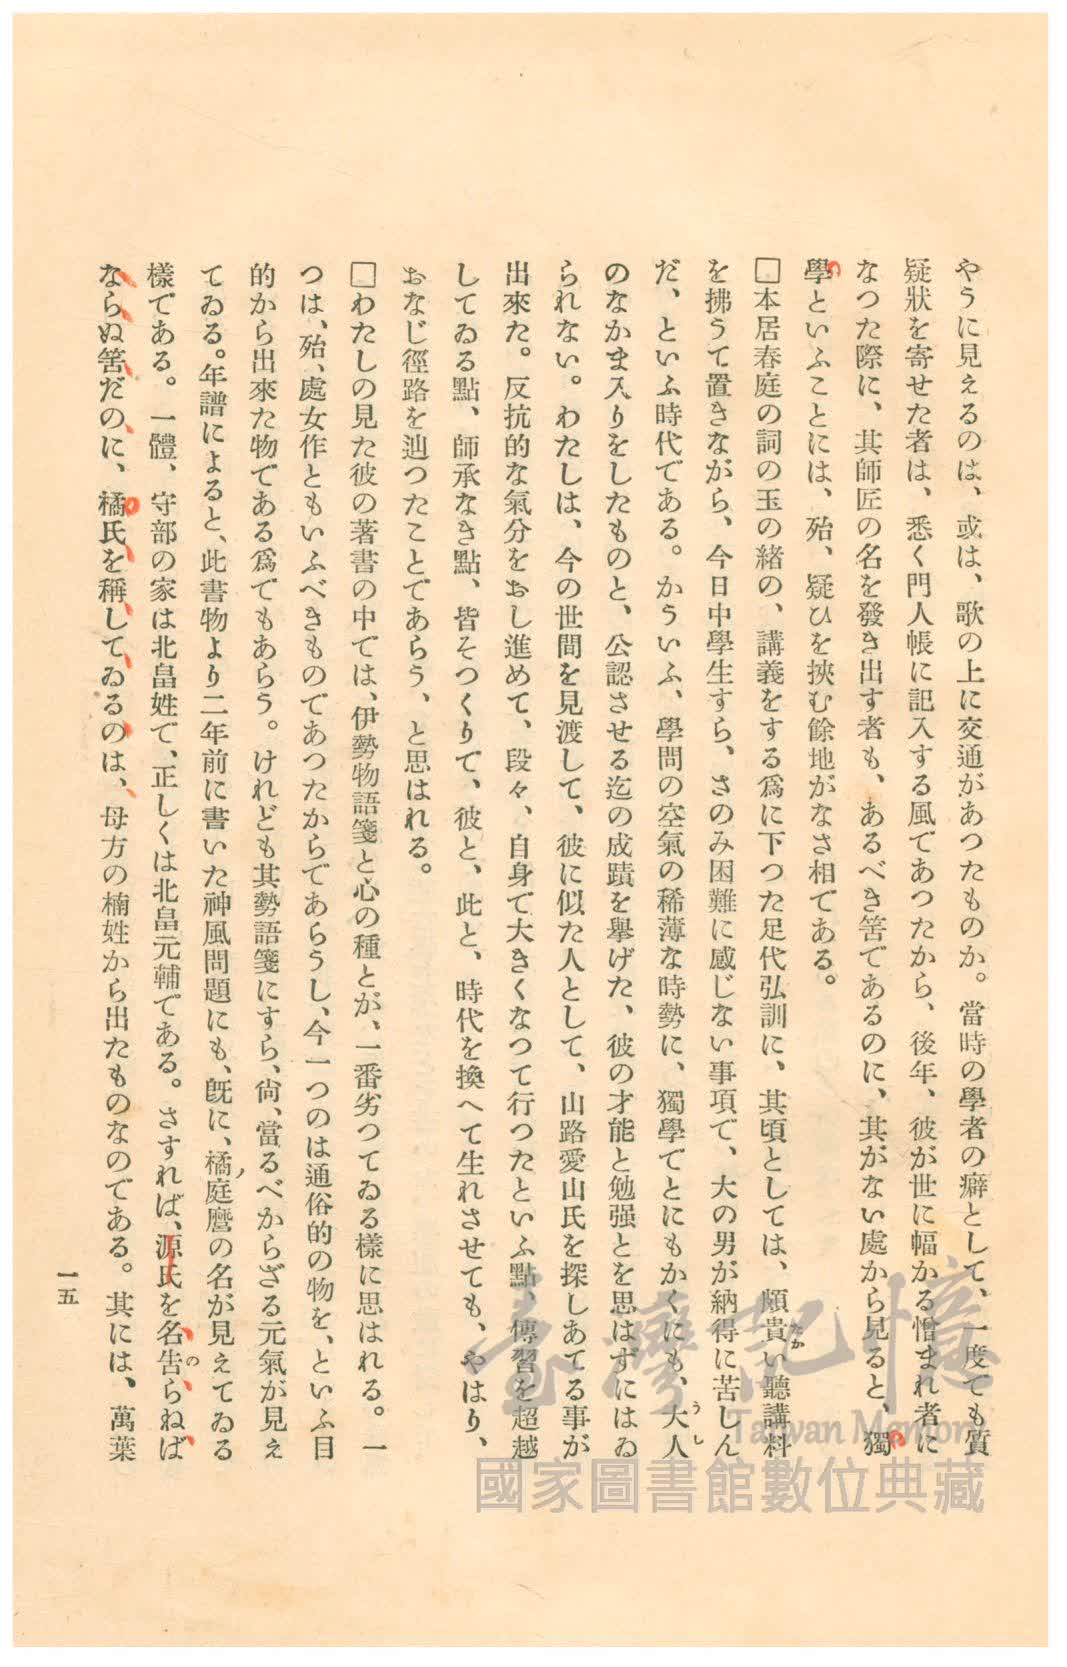 やうに見えるのは、或は、歌の上に交通があつたものか。當時の學者の癖として、一度でも質
疑狀を寄せた者は、悉く門人帳に記入する風であつたから、後年、彼が世に幅かる憎まれ者に
なつた際に、其師匠の名を發き出す者も、あるべき筈であるのに、其がない處から見ると、獨
學といふことには、殆、疑ひを挾む餘地がなさ相である。
□本居春庭の詞の玉の緒の、講義をする爲に下つた足代弘訓に、其頃としては、頗貴い聽講料
たか
を拂うて置きながら、今日中學生すら、さのみ困難に感じない事項で、大の男が納得に苦しん
だ、といふ時代である。かういふ、學問の空氣の稀薄な時勢に、獨學でとにもかくにも、大人
うし
のなかま入りをしたものと、公認させる迄の成蹟を擧げた、彼の才能と勉强とを思はずにはゐ
られない。わたしは、今の世間を見渡して、彼に似た人として、山路愛山氏を探しあてる事が
出來た。反抗的な氣分をおし進めて、段々、自身で大きくなつて行つたといふ點、傳習を超越
してゐる點、師承なき點、皆そつくりで、彼と、此と、時代を換へて生れさせても、やはり、
おなじ徑路を辿つたことであらう、と思はれる。
□わたしの見た彼の著書の中では、伊勢物語箋と心の種とが、一番劣つてゐる樣に思はれる。一
つは、殆、處女作ともいふべきものであつたからであらうし、今一つのは通俗的の物を、といふ目
的から出來た物である爲でもあらう。けれども其勢語箋にすら、尙、當るべからざる元氣が見え
てゐる。年譜によると、此書物より二年前に書いた神風問題にも、旣に、橘庭麿の名が見えてゐる
ノ
樣である。一體、守部の家は北畠姓で、正しくは北畠元輔である。さすれば、源氏を名告らねば
の
ならぬ筈だのに、橘氏を稱してゐるのは、母方の楠姓から出たものなのである。其には、萬葉
一五
臺灣記憶
Taiwan Memory
國家圖書館數位典藏